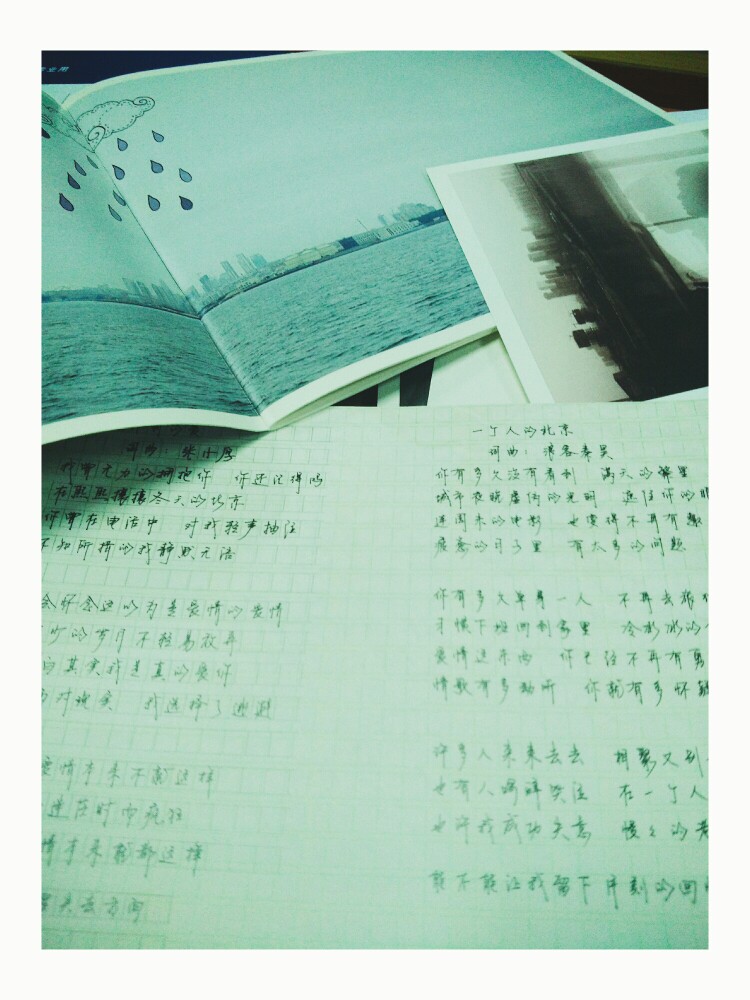 业用
词曲：
我曾无力的拥抱你 你还记得吗
在熙熙攘攘冬天的北京
你曾在电话中 对我轻声抽泣
不知所措的我静默无语
会怀念这以为是爱情的爱情
少的岁月不轻易放弃
其实我是真的爱你
对现实 我选择了逃避
爱情本来不就这样
迷茫时而疯狂
情本来就都这样
失去方向
一个人的北京
词曲：浪客秦昊
你有多久没有看到 满天的繁星
城市夜晚虚伪的光明 遮住你的眼
连周末的电影 也变得不再有趣
疲惫的日子里 有太多的问题
你有多久单身一人 不再去旅
习惯下班回到家里 冷冰冰的
爱情这东西 你已经不再有勇
情歌有多动听 你就有多怀疑
许多人来来去去 相聚又别
也有人喝醉哭泣 在一个人
也许我成功失意 慢々的老
能不能让我留下片刻的回